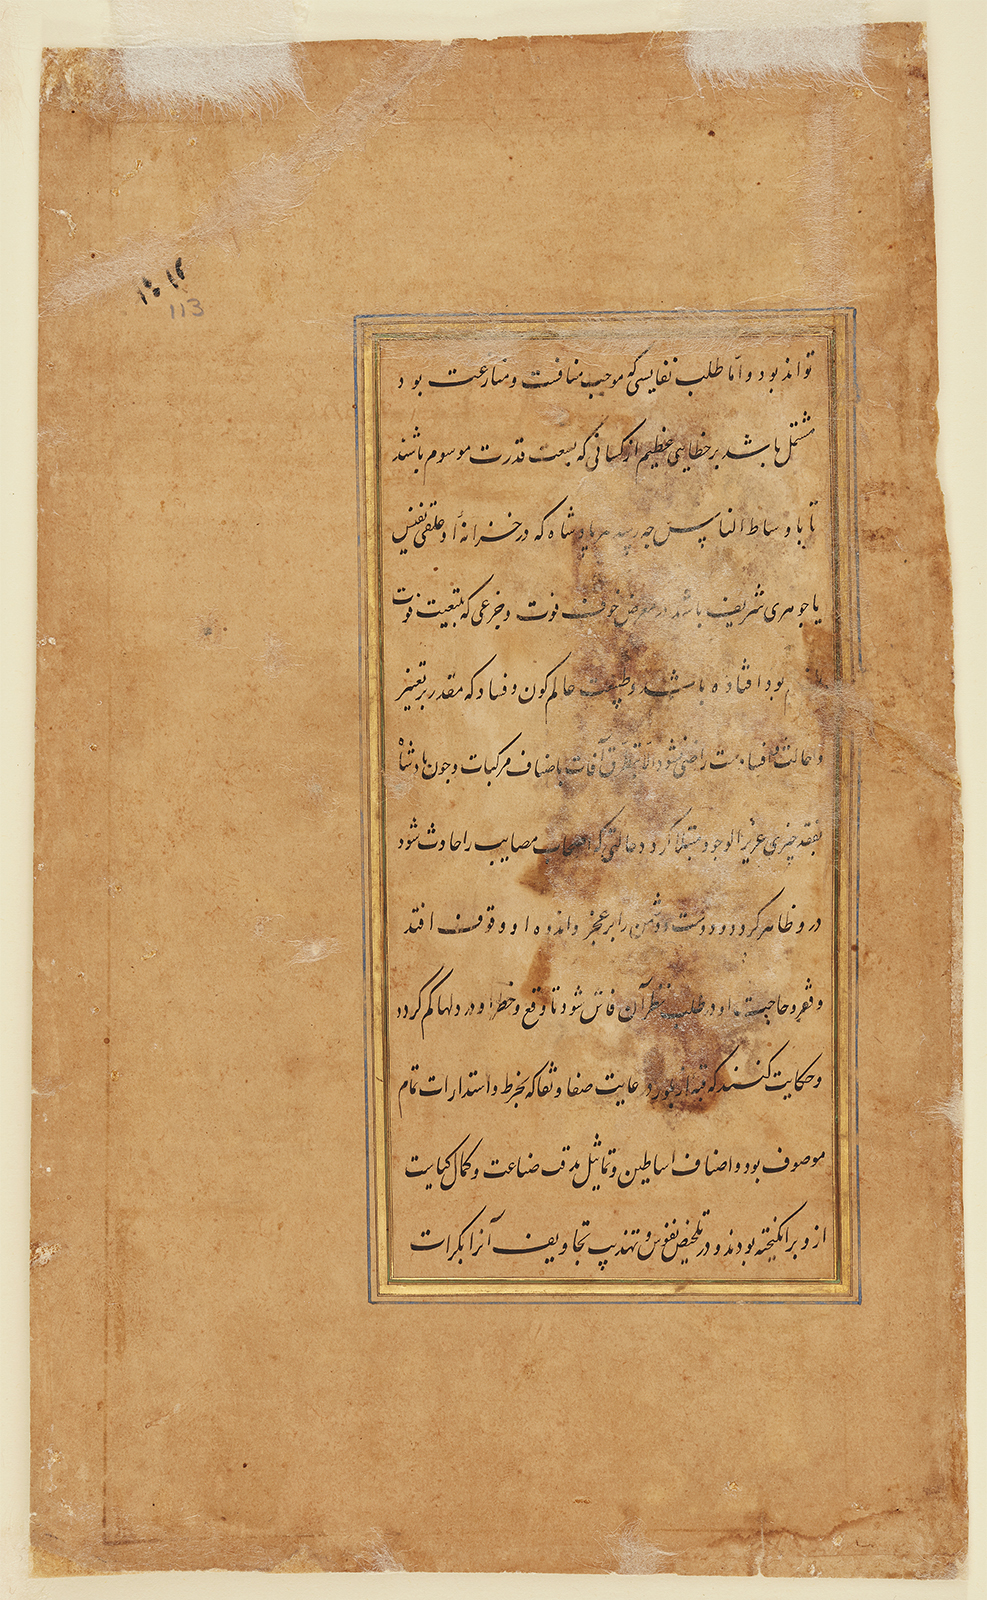 ۱۰۱۲
113
تواند بود و اما طلب نفایسی که موجب منافست و منازعت بود
مشتمل باشد بر خطایی عظیم از کسانی که بسعت قدرت موسوم باشند
تا باوساط الناس چه رسد هر پادشاه که در خزانهٔ او علقی نفیس
یا جوهری شریف باشد در معرض خوف فوت و جزعی که بتبعیت فوت
بود افتاده باشد و طبیعت عالم کون و فساد که مقدر بر تغییر
و احالت و افساد است راضی نشود الا بتطرق آفات باصناف مرکبات و چون پادشاه
بفقد چیزی عزیز الوجود مبتلا گردد حالتی که اصحاب مصایب را حادث شود
درو ظاهر گردد و دوست و دشمن را بر عجز و اندوه او وقوف افتد
و فقر و حاجت او در طلب نظیر آن فاش شود تا وقع و خطر او در دلها کم گردد
و حکایت کنند که قبه از بلور در غایت صفا و نقا که بخرط و استدارات تمام
موصوف بود و اصناف اساطین و تماثیل بدقت صناعت و کمال کیاست
ازو برانگیخته بودند و در تلخیص نقوش و تهذیب تجاویف آنرا بکرات